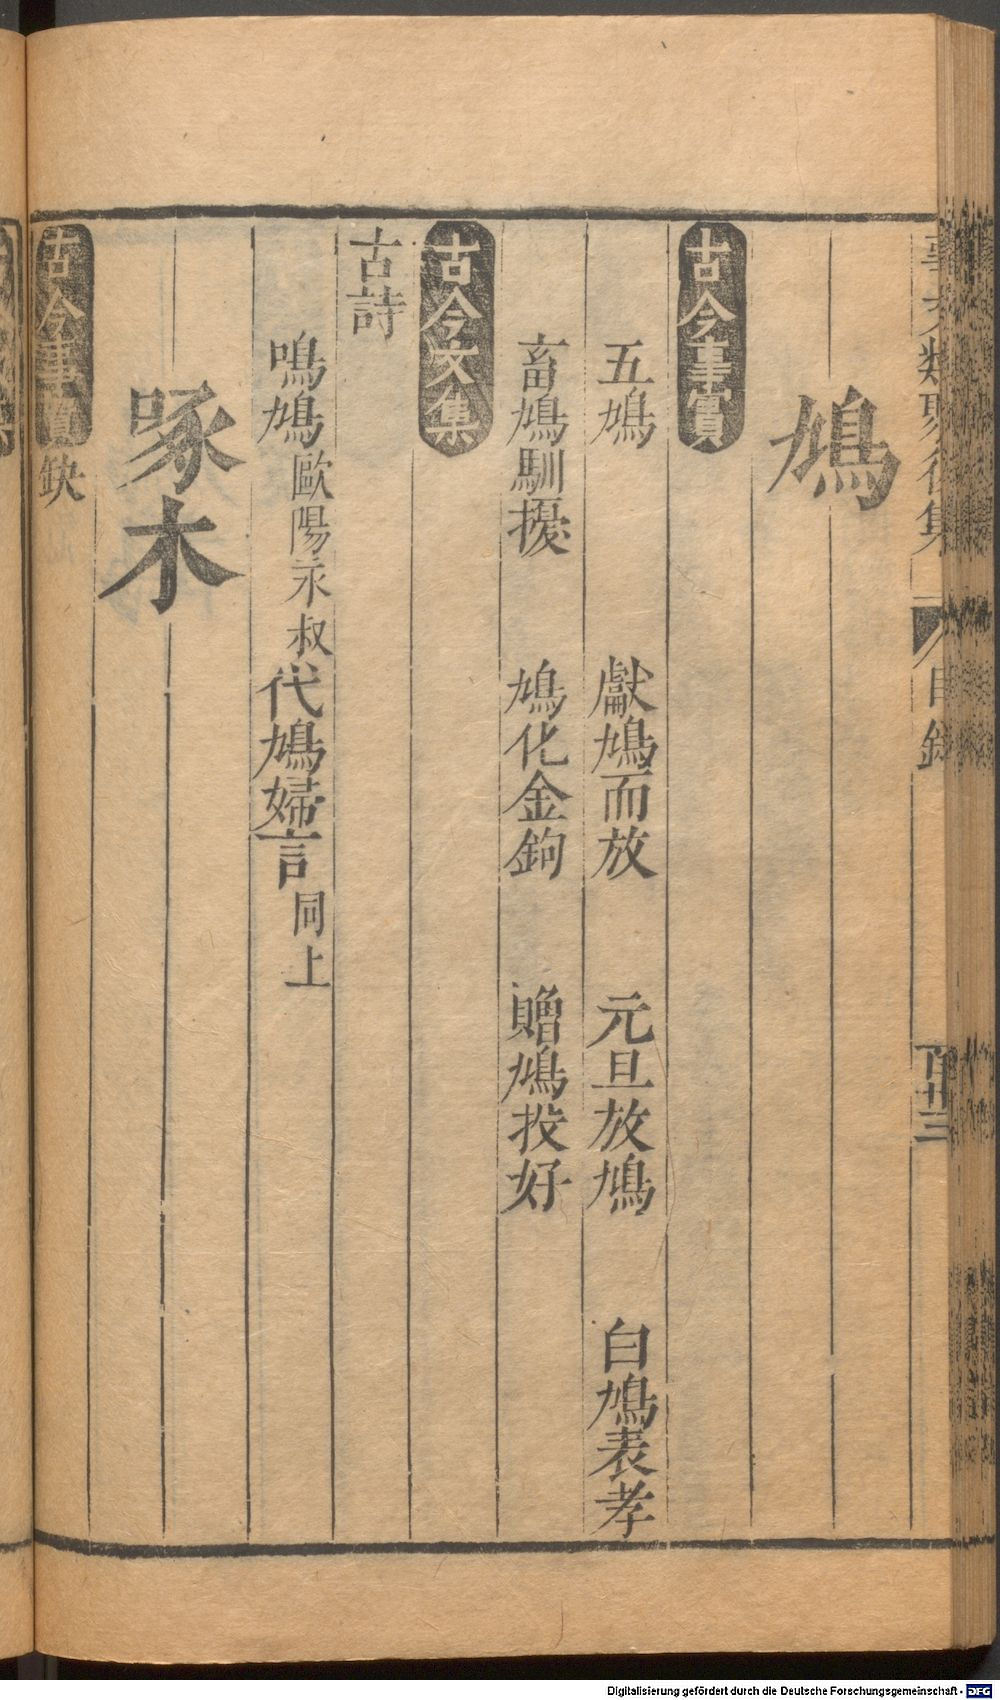 事文類聚後集 目錄 百卅三
鳩
古今事實
五鳩 獻鳩而放 元旦放鳩 白鳩表孝
畜鳩馴擾 鳩化金鉤 贈鳩投好
古今文集
古詩
鳴鳩歐陽永叔代鳩婦言同上
啄木
古今事實缺
Digitalisierung gefördert durch die Deutsche Forschungsgemeinschaft - DFG